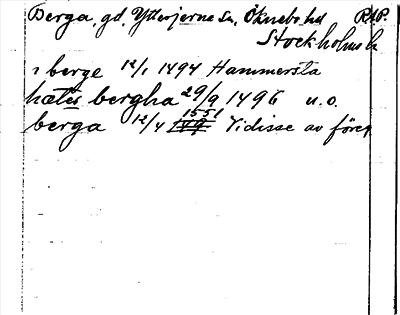 Berga, gd, Ytterjerne sn, Öknebo hd RAP.
Stockholms l
i berge 12/1 1494 Hammersta
hætes bergha 29/9 1496 u.o.
berga 12/4 1551 Vidisse av föreg